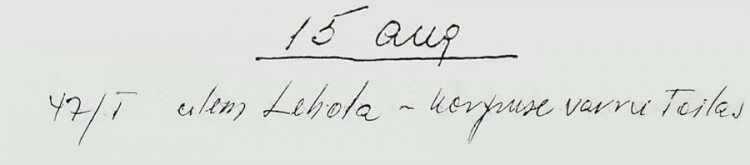 15 aug
47/I alem Lehola - Korpuse varri Toilas